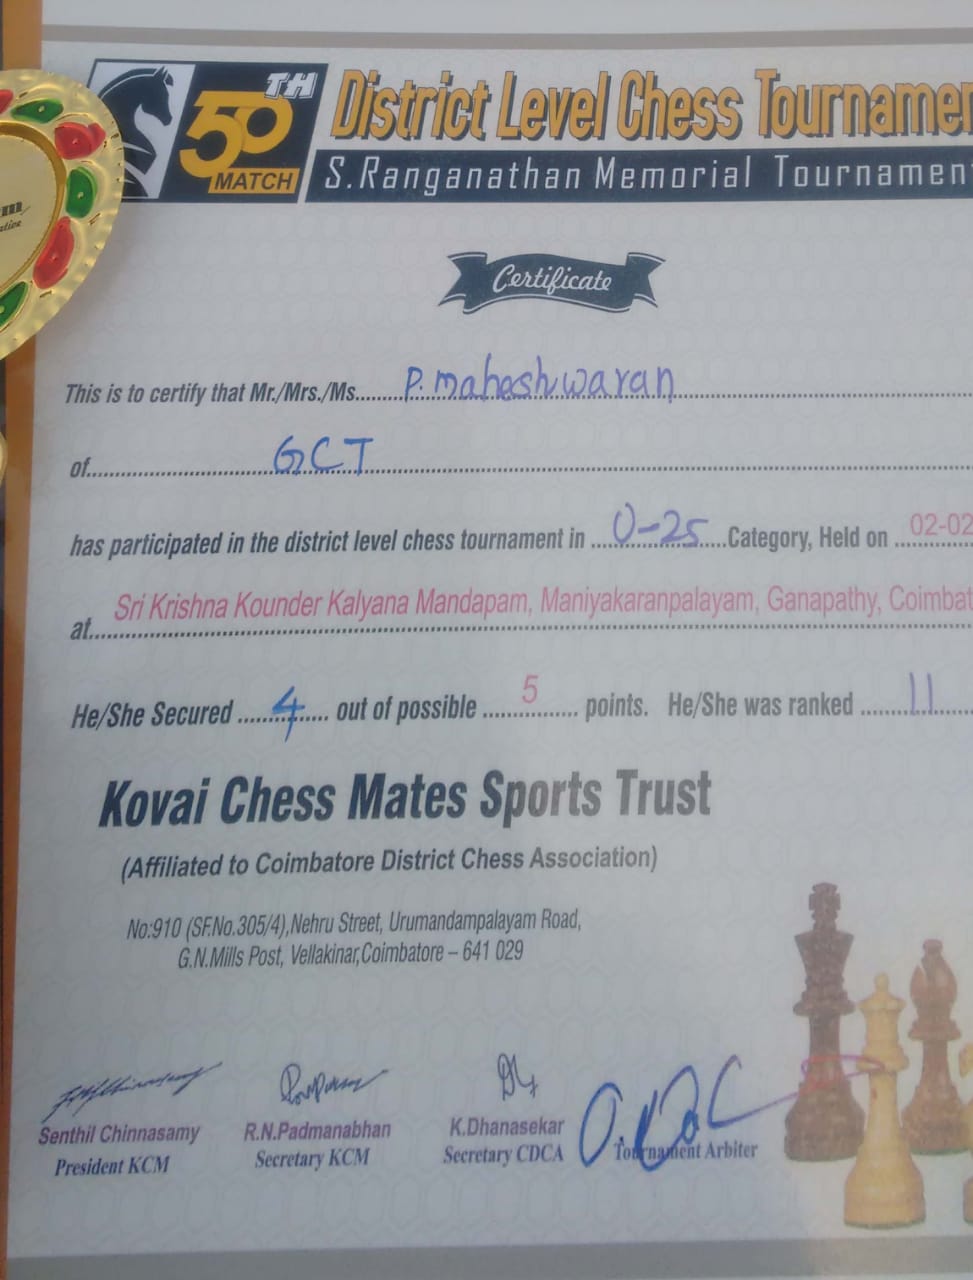 50TH MATCH
District Level Chess Tournamen
S.Ranganathan Memorial Tournamen
Certificate
This is to certify that Mr./Mrs./Ms......P. maheshwaran
of......GCT
has participated in the district level chess tournament in ......U-25......Category, Held on ......02-02
at......Sri Krishna Kounder Kalyana Mandapam, Maniyakaranpalayam, Ganapathy, Coimbat
He/She Secured ......4...... out of possible ......5...... points. He/She was ranked ......11......
Kovai Chess Mates Sports Trust
(Affiliated to Coimbatore District Chess Association)
No:910 (SF.No.305/4),Nehru Street, Urumandampalayam Road,
G.N.Mills Post, Vellakinar,Coimbatore – 641 029
Senthil Chinnasamy R.N.Padmanabhan K.Dhanasekar
President KCM Secretary KCM Secretary CDCA Tournament Arbiter